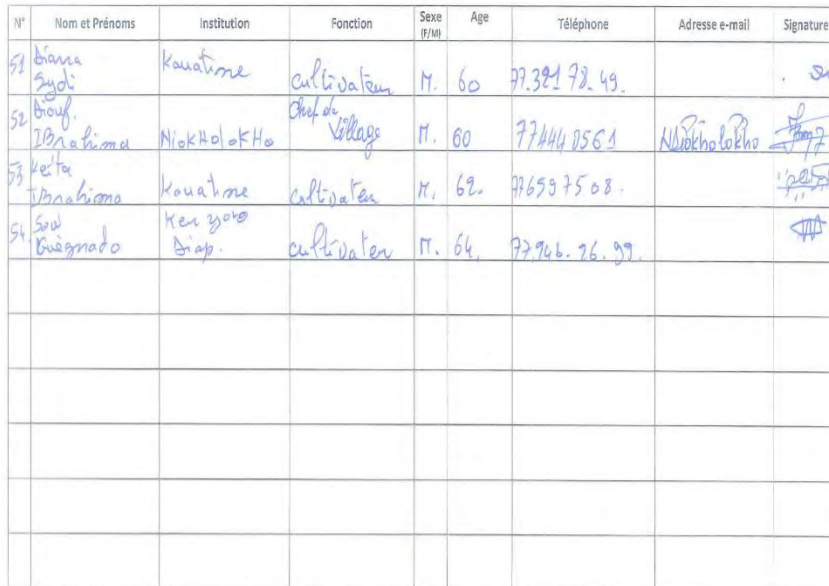 N° Nom et Prénoms Institution Fonction Sexe (F/M) Age Téléphone Adresse e-mail Signature
51 Diarra Sydi Kouatine cultivateur M. 60 77.321 78.49.
52 Diouf. IBrahima NioKHoloKHo Chef de Village M. 60 77444 0561 NDiokholokho
53 Keita IBrahima Kouatine cultivateu M. 62. 776597508.
54. Sow Keu yoro Diap. cultivateu M. 64. 77.946.26.99.